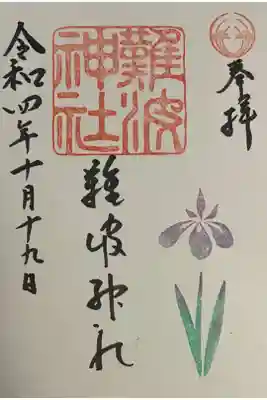 奉拝
難波神社
難波神社
令和四年十月十九日